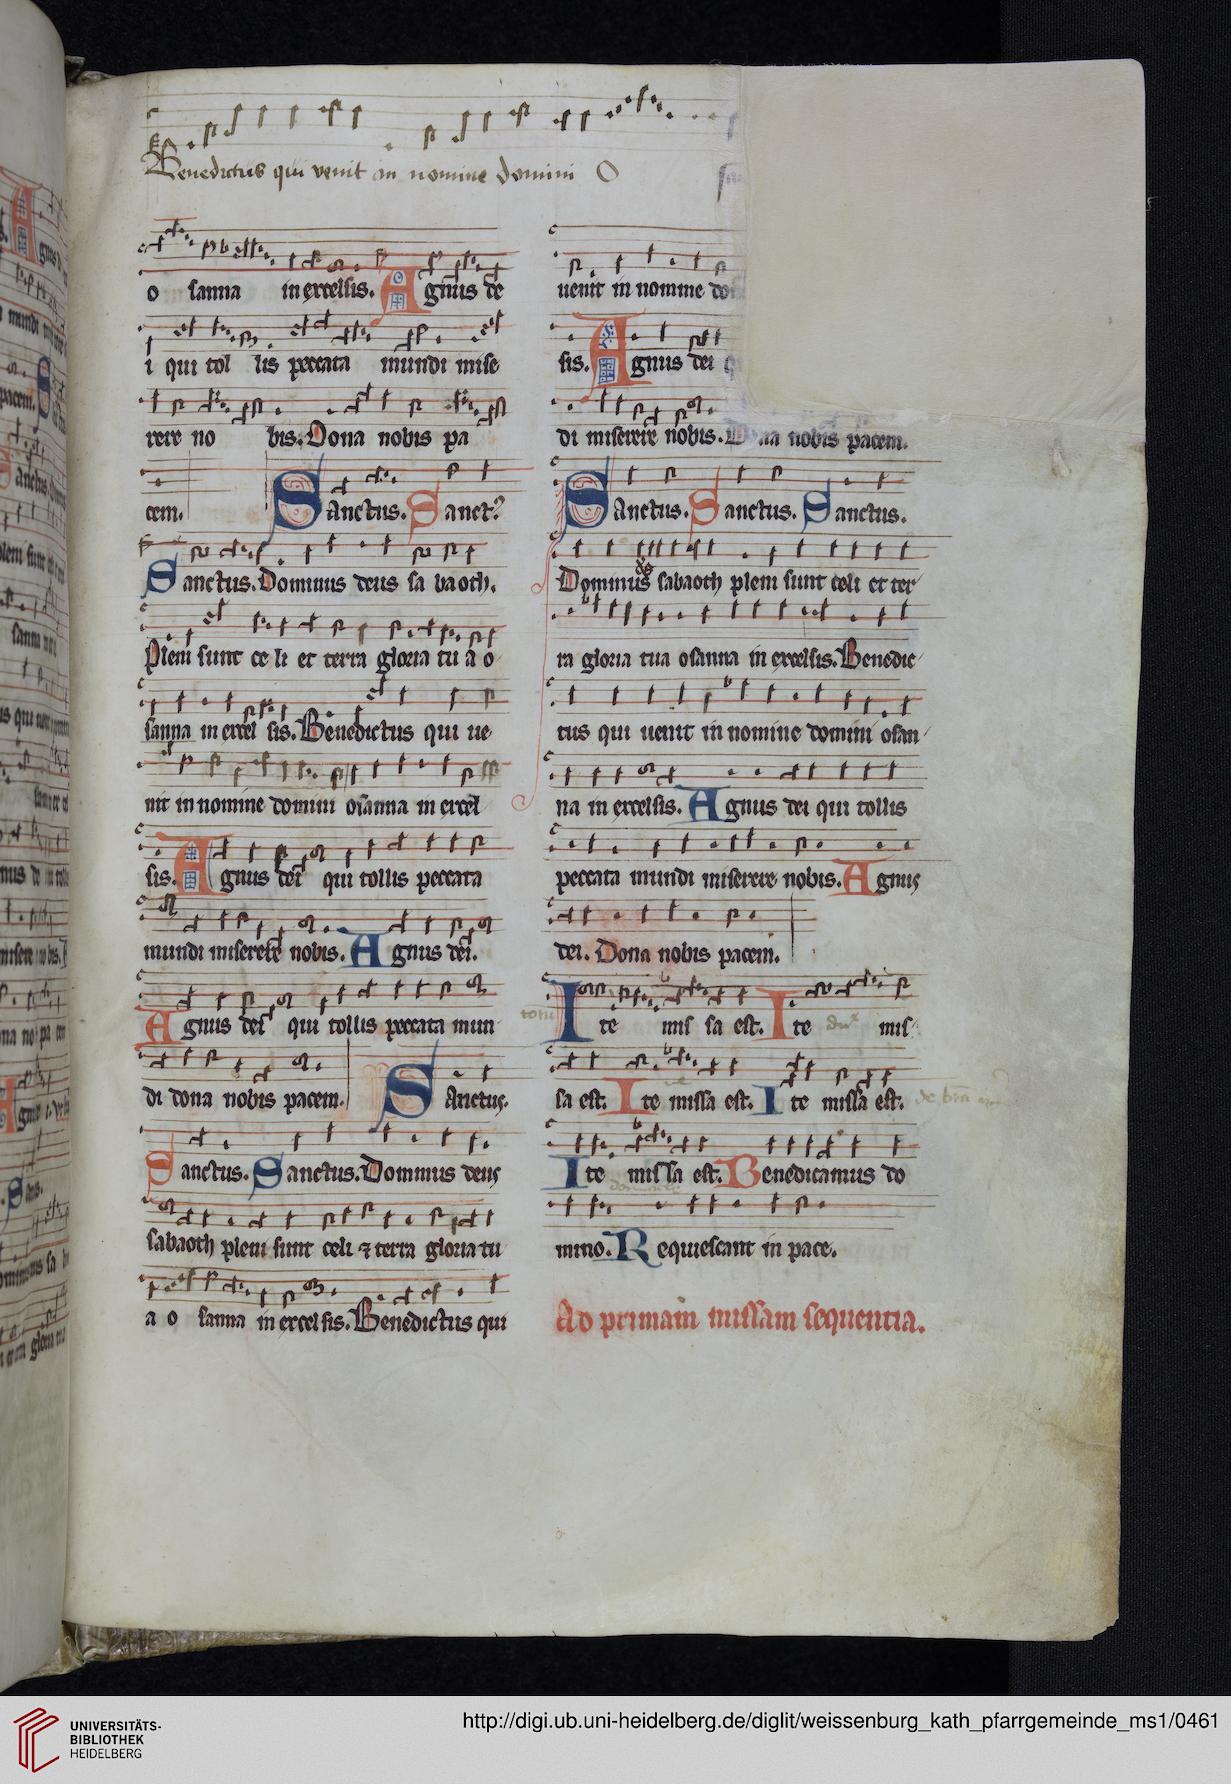 Benedictus qui venit in nomine domini O
o sanna in excelsis. Agnus de
i qui tol lis peccata mundi mise
rere no bis. Dona nobis pa
cem. Sanctus. Sanct⁹
Sanctus. Dominus deus sa baoth.
Pleni sunt ce li et terra gloria tu a o
sanna in excel sis. Benedictus qui ue
nit in nomine domini osanna in excel
sis. Agnus dei qui tollis peccata
mundi miserere nobis. Agnus dei.
Agnus dei qui tollis peccata mun
di dona nobis pacem. Sanctus.
Sanctus. Sanctus. Dominus deus
sabaoth pleni sunt celi ⁊ terra gloria tu
a o sanna in excel sis. Benedictus qui
uenit in nomine do
sis. Agnus dei q
di miserere nobis. Dona nobis pacem.
Sanctus. Sanctus. Sanctus.
Dominus ds sabaoth pleni sunt celi et ter
ra gloria tua osanna in excelsis. Benedic
tus qui uenit in nomine domini osan
na in excelsis. Agnus dei qui tollis
peccata mundi miserere nobis. Agnus
dei. Dona nobis pacem.
Ite mis sa est. Ite mis
sa est. Ite missa est. Ite missa est.
Ite missa est. Benedicamus do
mino. Requiescant in pace.
Ad primam missam sequentia.
UNIVERSITÄTS-
BIBLIOTHEK
HEIDELBERG
http://digi.ub.uni-heidelberg.de/diglit/weissenburg_kath_pfarrgemeinde_ms1/0461